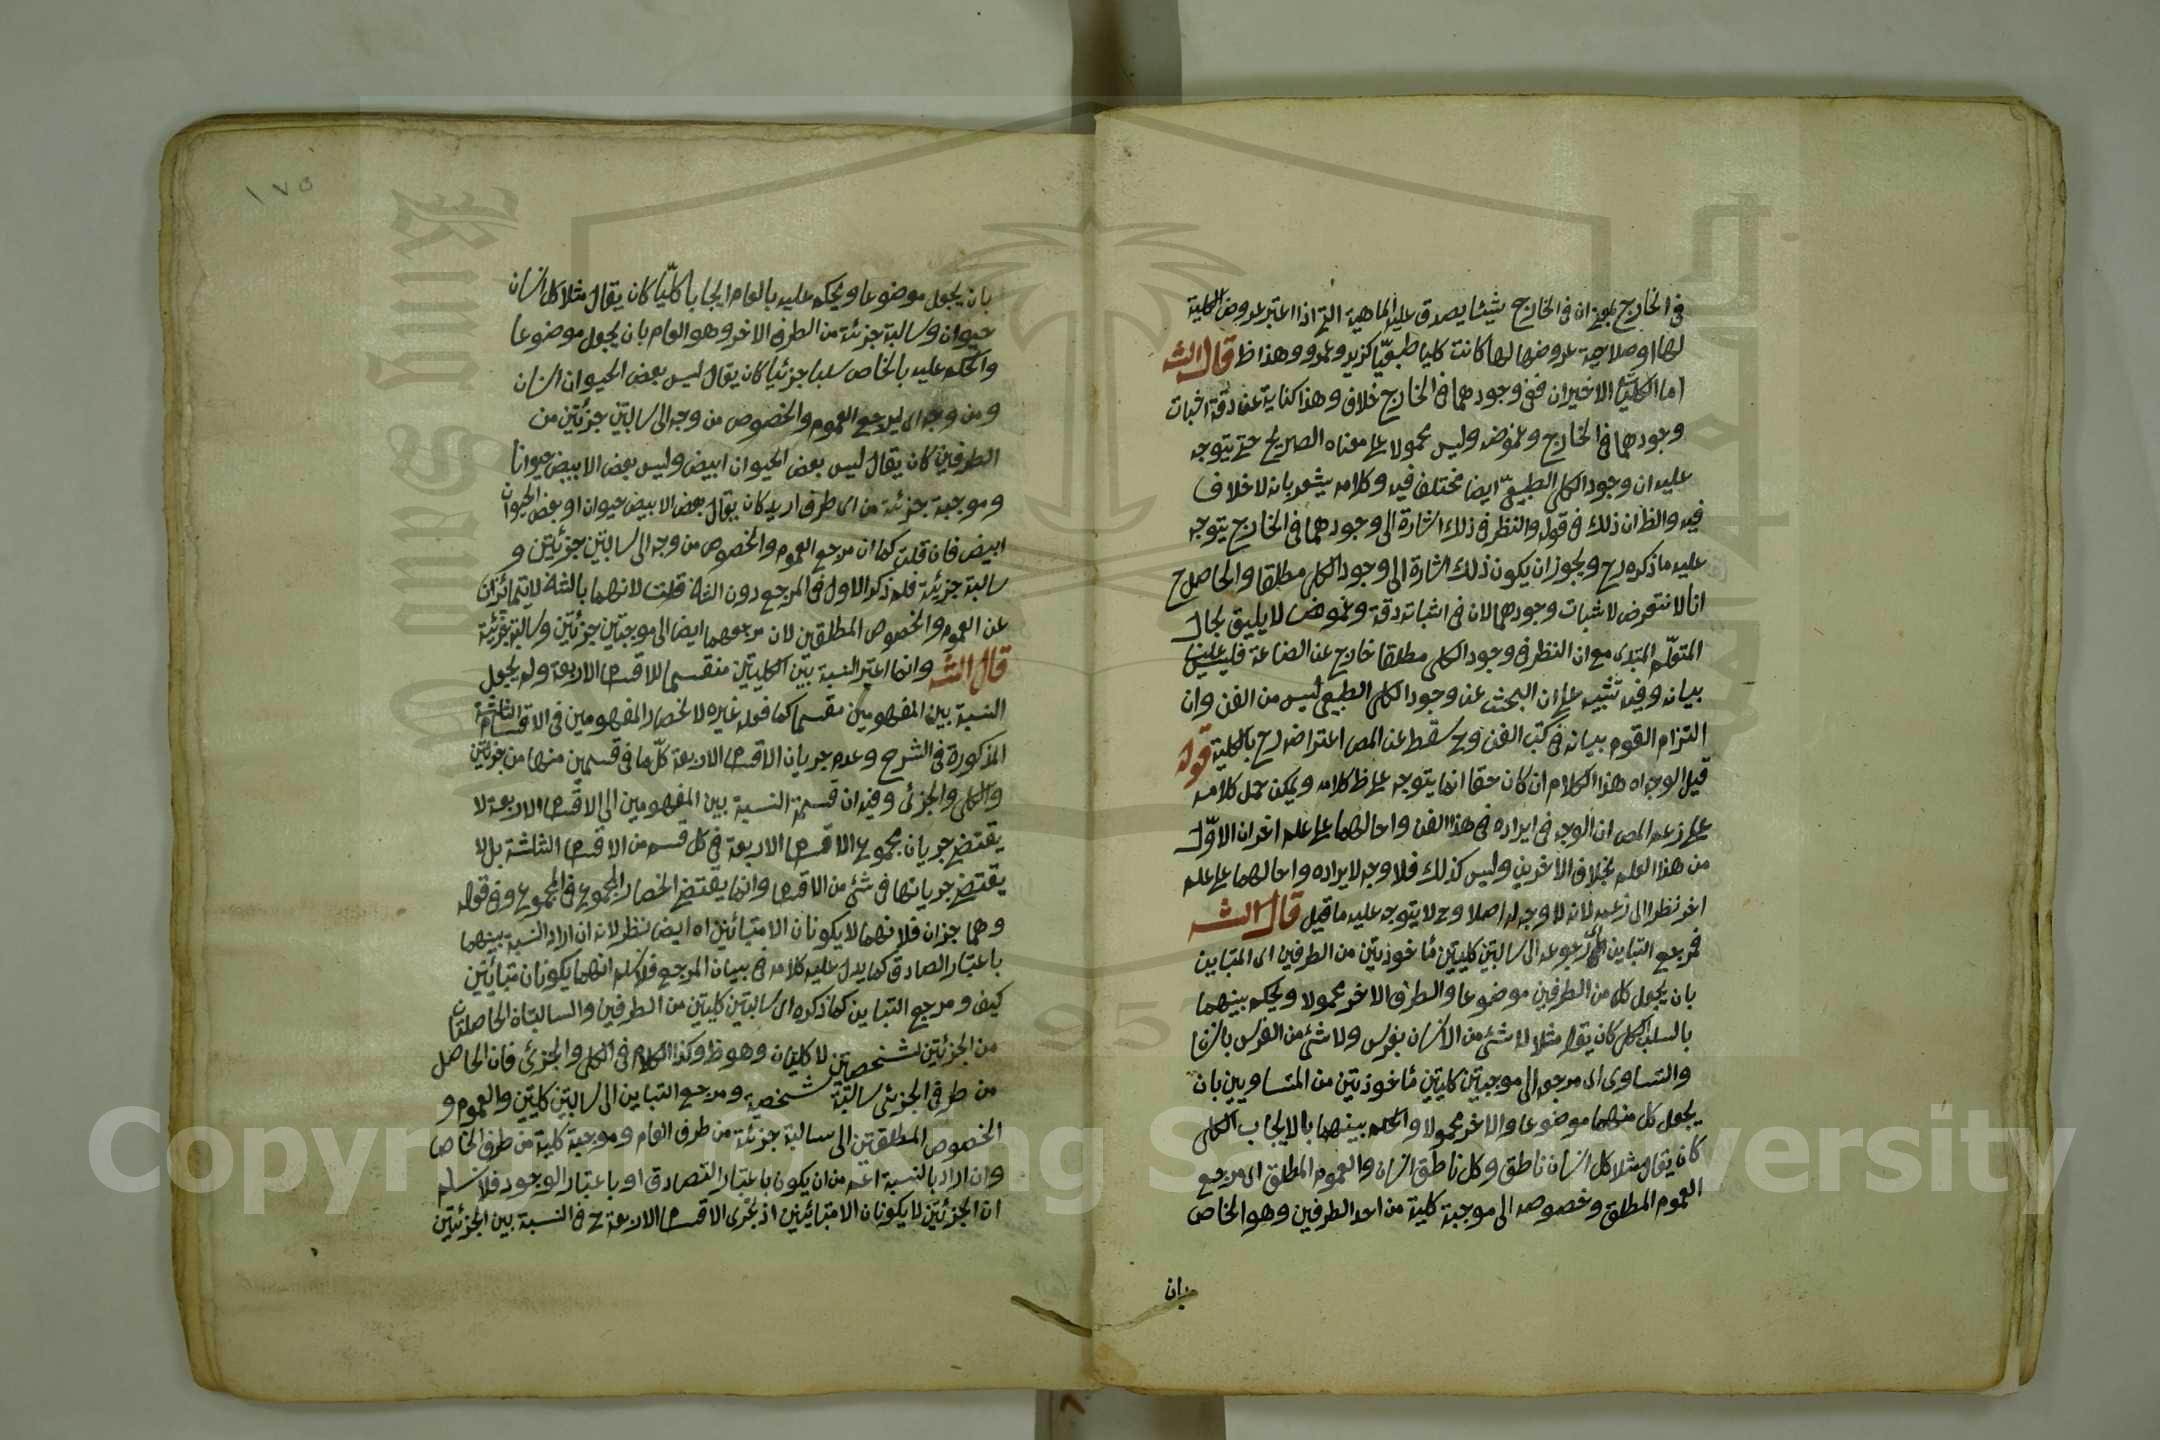 في الخارج بمعنى ان في الخارج شيئا يصدق عليه الماهية التي اذا اعتبر عروض الكلية
لها او صلاحية عروضها لها كانت كليا طبيعيّا كزيد وعمرو وهذا ظ قال الشـ
اما الكليان الاخيران ففي وجودهما في الخارج خلاف وهذا كناية عن دقة اثبات
وجودهما في الخارج وغموضه وليس محمولا على معناه الصريح حتى يتوجه
عليه ان وجود الكلي الطبيعيّ ايضا مختلف فيه وكلامه يشعر بانه لا خلاف
فيه والظ ان ذلك في قوله والنظر في ذلك اشارة الى وجودهما في الخارج يتوجه
عليه ما ذكره رح ويجوز ان يكون ذلك اشارة الى وجود الكلي مطلقا والحاصل ح
انا لا نتعرض لاثبات وجودهما لان في اثباته دقة وغموض لا يليق بحال
المتعلّم المبتدى مع ان النظر في وجود الكلي مطلقا خارج عن الصناعة فليس علينا
بيانه وفيه تنبيه على ان البحث عن وجود الكلي الطبيعي ليس من الفن وان
التزام القوم بيانه في كتب الفن وح سقط عن المص اعتراضه رح بالكلية قوله
قيل الوجه اه هذا الكلام ان كان حقا انما يتوجه على ظ كلامه ويمكن حمل كلامه
على زعم المص ان الوجه في ايراده في هذا الفن واحالهما على علم اخر ان الاوّل
من هذا العلم بخلاف الاخرين وليس كذلك فلا وجه لايراده واحالهما على علم
اخر نظرا الى زعمه لانه لا وجه له اصلا وح لا يتوجه عليه ما قيل قال الشـ
فمرجع التباين اى رجوعه الى سالبتين كليتين مأخوذتين من الطرفين اى المتباين
بان يجعل كل من الطرفين موضوعا والطرف الاخر محمولا ويحكم بينهما
بالسلب الكلى كان يقال مثلا لا شئ من الانسان بفرس ولا شئ من الفرس بانسان
والتساوى اى مرجعه الى موجبتين كليتين مأخوذتين من المتساويين بان
يجعل كل منهما موضوعا والاخر محمولا والحكم بينهما بالايجاب الكلى
كان يقال مثلا كل انسان ناطق وكل ناطق انسان والعموم المطلق اى مرجع
العموم المطلق وخصوصه الى موجبة كلية من احد الطرفين وهو الخاص
بان
١٧٥
بان يجعل موضوعا ويحكم عليه بالعام ايجابا كليّا كان يقال مثلا كل انسان
حيوان وسالبة جزئية من الطرف الاخر وهو العام بان يجعل موضوعا
والحكم عليه بالخاص سلبا جزئيا كان يقال ليس بعض الحيوان انسان
ومن وجه اى يرجع العموم والخصوص من وجه الى سالبتين جزئتين من
الطرفين كان يقال ليس بعض الحيوان ابيض وليس بعض الابيض حيوانا
وموجبة جزئية من اى طرف اريد كان يقال بعض الابيض حيوان او بعض الحيوان
ابيض فان قلت كما ان مرجع العموم والخصوص من وجه الى سالبتين جزئيتين و
سالبة جزئية فلم ذكر الاول في المرجع دون الثانى قلت لانهما بالثانى لا يتمائزان
عن العموم والخصوص المطلقين لان مرجعهما ايضا الى موجبتين جزئتين وسالبة جزئية
قال الشـ وانما اعتبر النسبة بين الكليتين منقسما للاقسام الاربعة ولم يجعل
النسبة بين المفهومين مقسما كما فعله غيره لانحصار المفهومين في الاقسام الثلثة
المذكورة في الشرح وعدم جريان الاقسام الاربعة كلّها في قسمين منها من جزئيين
والكلى والجزئى وفيه ان قسمة النسبة بين المفهومين الى الاقسام الاربعة لا
يقتضى جريان مجموع الاقسام الاربعة في كل قسم من الاقسام الثلثة بل لا
يقتضى جريانها في شئ من الاقسام وانما يقتضى انحصار المجموع في المجموع وفى قوله
وهما جزان فلانهما لا يكونان الا متبائنين اه ايض نظر لانه ان اراد النسبة بينهما
باعتبار الصادق كما يدل عليه كلامه في بيان المرجع فلا نسلم انهما يكونان متبائنين
كيف ومرجع التباين كما ذكره اى سالبتين كليتين من الطرفين والسالبتان الحاصلتان
من الجزئيتين شخصيتين لا كليتان وهو ظ وكذا الكلام في الكلى والجزئى فان الحاصل
من طرفى الجزئى سالبة شخصية ومرجع التباين الى سالبتين كليتين والعموم و
الخصوص المطلقتين الى سالبة جزئية من طرف العام وموجبة كلية من طرف الخاص
وان اراد بالنسبة اعم من ان يكون باعتبار التصادق او باعتبار الوجود فلا نسلم
ان الجزئيين لا يكونان الا متبائنين اذ يجرى الاقسام الاربعة ح في النسبة بين الجزئيتين
Copyright © King Saud University